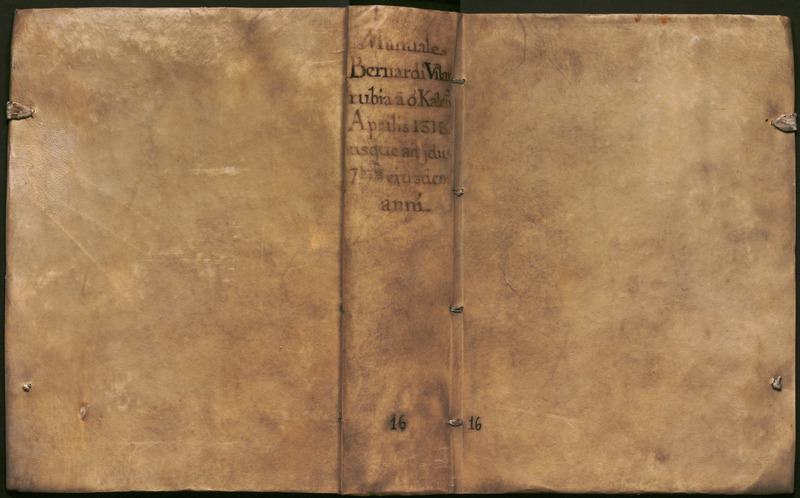 Manuale
Bernardi Vila
rubia ā 6 Kalen
Aprilis 1318
usque ad jdus
7bris eiusdem
anni.
16
16